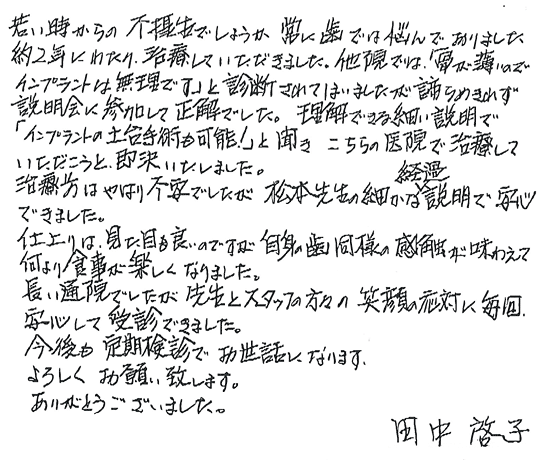 若い時からの 不摂生でしょうか 常に歯では悩んでおりました
約2年にわたり、治療していただきました。他院では、「骨が薄いので
インプラントは無理です」と診断されてしまいましたが諦らめきれず
説明会に参加して正解でした。 理解できる細い説明で
「インプラントの土台手術も可能!」と聞き こちらの医院で治療して
いただこうと、即決いたしました。
治療方はやはり不安でしたが 松本先生の細かな経過説明で安心
できました。
仕上りは、見た目も良いのですが 自身の歯同様の感触が味わえて
何より食事が楽しくなりました。
長い通院でしたが 先生とスタッフの方々の 笑顔の応対に毎回、
安心して受診できました。
今後も 定期検診でお世話になります、
よろしく お願い致します。
ありがとうございました。
田中 啓子